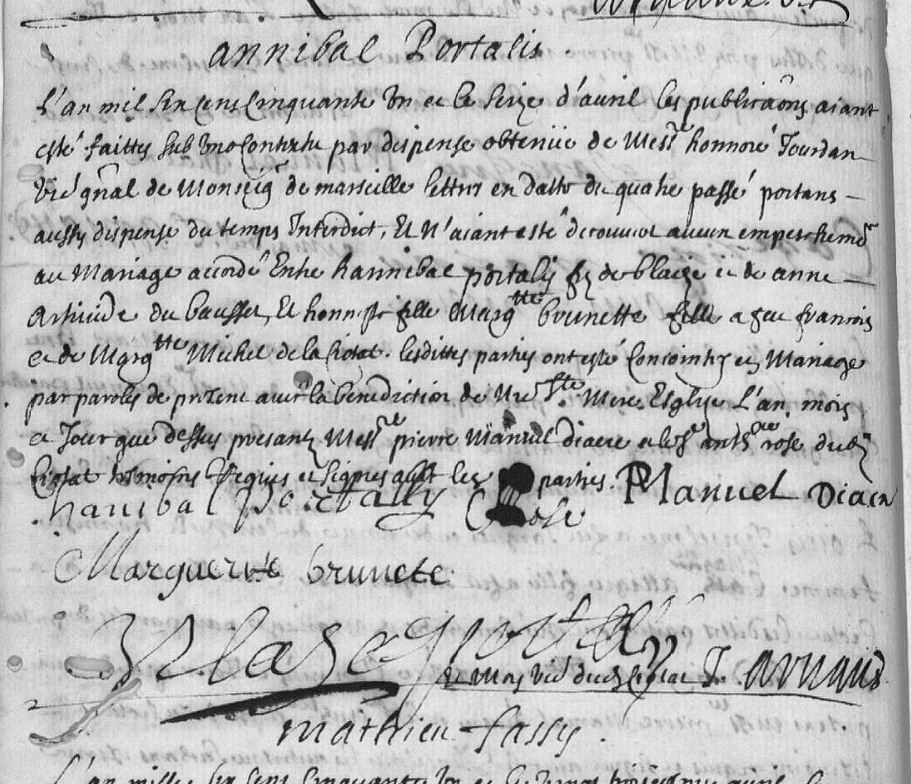 annibal Portalis.
L'an mil six cens cinquante un et le seize d'auril les publicaõns aiant
esté faittes sub uno contextu par dispense obtenüe de Mess^re honnoré Jourdan
vic^re gñal de Monseig^r de marseille lettres en datte du quatre passé portans
aussy dispense du temps Interdict, Et n'aiant esté decouuert aucun empeschem^t
au Mariage accordé Entre hannibal portalis fiz de blaize et de anne
du bausset, Et honneste fille Marg^tte brunette fille a feu francois
et de Marg^tte Michel de la Ciotat. lesdittes parties ont esté conjointes en Mariage
par paroles de present auec la benediction de N^re S^te Mere Esglise L'an, mois
et Jour que dessus presants Mess^re pierre Manuel diacre et anth^ne rose dud
Ciotat tesmoins Requis et signes auec les parties. PManuel Diacre
hanibal Portally
Marguerite brunete
Blaze portally
J. Arnaud
mathieu fassy.
L'an mille six cens cinquante un et le auril